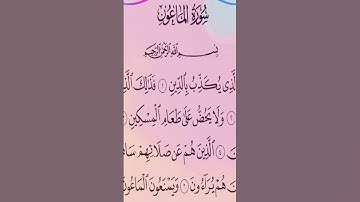 سُورَةُ المَاعُونِ
بِسْمِ ٱللَّهِ ٱلرَّحْمَٰنِ ٱلرَّحِيمِ
يُكَذِّبُ بِٱلدِّينِ ١ فَذَٰلِكَ
وَلَا يَحُضُّ عَلَىٰ طَعَامِ ٱلْمِسْكِينِ
٤ ٱلَّذِينَ هُمْ عَن صَلَاتِهِمْ
هُمْ يُرَآءُونَ ٦ وَيَمْنَعُونَ ٱلْمَاعُونَ